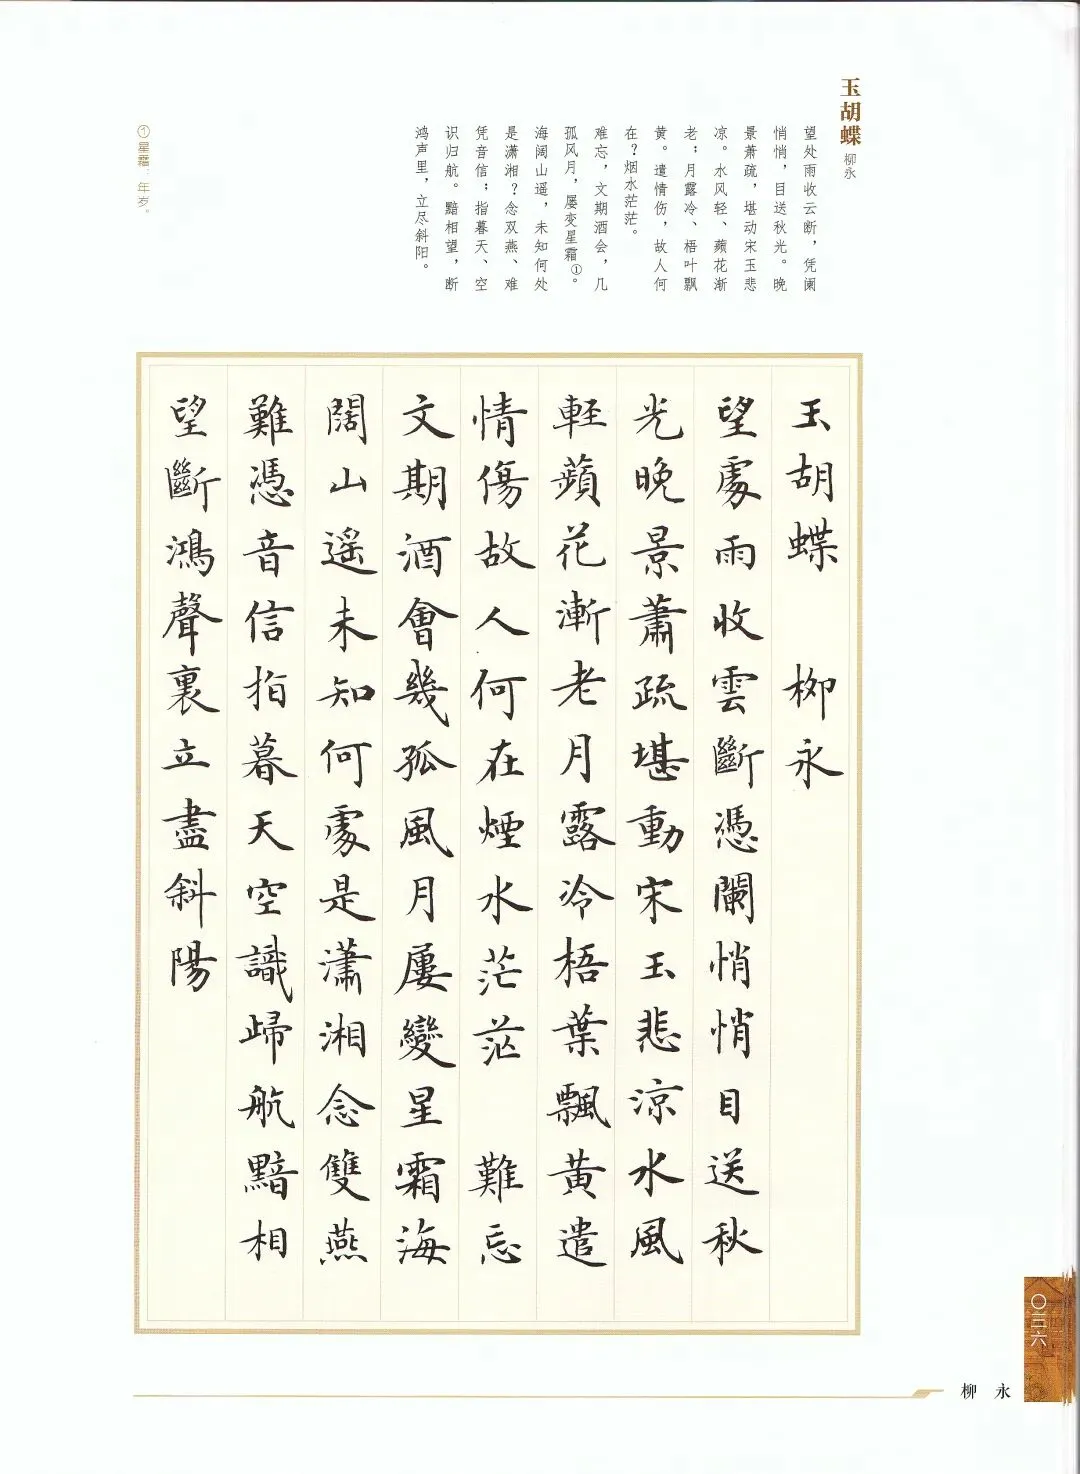 玉胡蝶 柳永
望处雨收云断，凭阑
悄悄，目送秋光。晚
景萧疏，堪动宋玉悲
凉。水风轻、蘋花渐
老；月露冷、梧叶飘
黄。遣情伤，故人何
在？烟水茫茫。
难忘，文期酒会，几
孤风月，屡变星霜①。
海阔山遥，未知何处
是潇湘？念双燕、难
凭音信；指暮天、空
识归航。黯相望，断
鸿声里，立尽斜阳。
①星霜：年岁。
玉胡蝶 柳永
望處雨收雲斷憑闌悄悄目送秋
光晚景蕭疏堪動宋玉悲涼水風
輕蘋花漸老月露冷梧葉飄黃遣
情傷故人何在煙水茫茫 難忘
文期酒會幾孤風月屢變星霜海
闊山遥未知何處是瀟湘念雙燕
難憑音信指暮天空識歸航黯相
望斷鴻聲裏立盡斜陽
〇三六
柳永